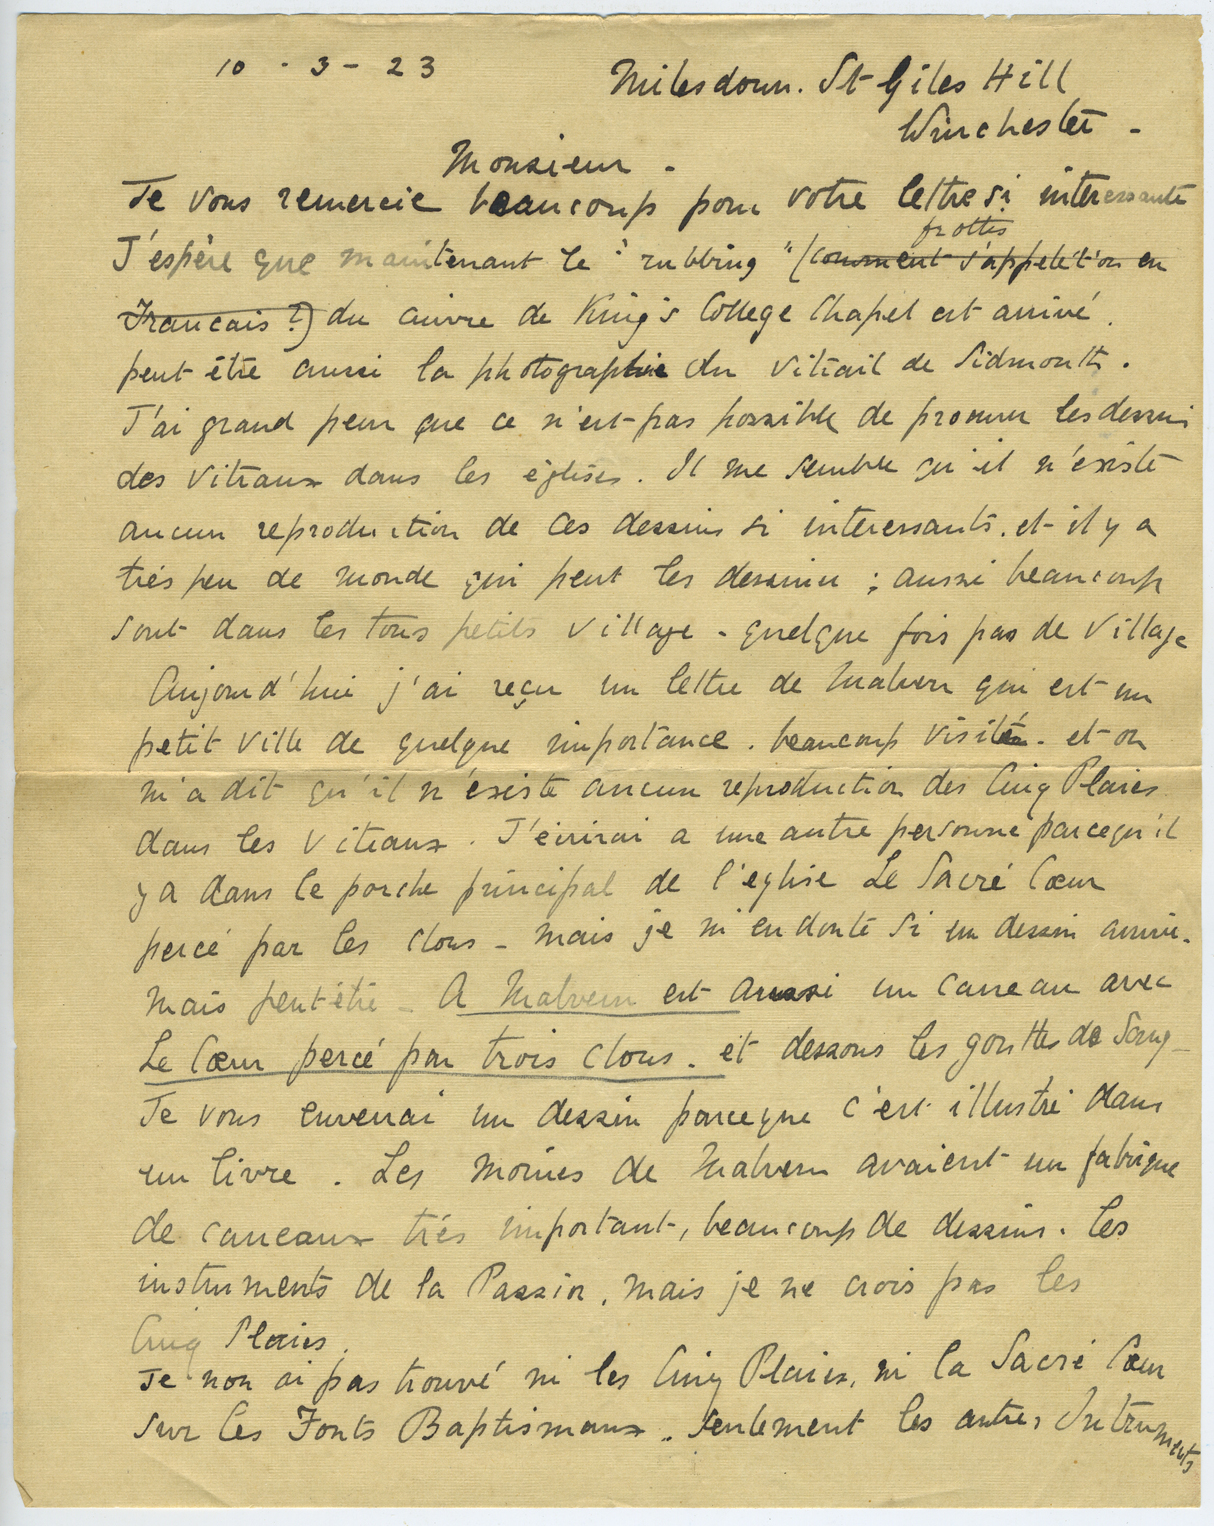 10 - 3 - 23
Milesdown. St Giles Hill
Winchester -
Monsieur -
Je vous remercie beaucoup pour votre lettre si intéressante
frottis
J'espère que maintenant le "rubbing" (comment s'appele t'on en
Francais ?) du cuivre de King's College Chapel est arrivé.
peut être aussi la photographie du vitrail de Sidmouth.
J'ai grand peur que ce n'est pas possible de procurer les dessins
des vitraux dans les églises. Il me semble qu'il n'existe
aucun reproduction de ces dessins si interessants. et il y a
très peu de monde qui peut les dessiner ; aussi beaucoup
sont dans les tous petits village - quelque fois pas de village
Aujourd'hui j'ai reçu un lettre de Malvern qui est un
petit ville de quelque importance. beaucoup visité. et on
m'a dit qu'il n'existe aucun reproduction des Cinq Plaies
dans les vitraux. J'écrirai a une autre personne parcequ'il
y a dans le porche principal de l'eglise Le Sacré Cœur
percé par les clous - mais je m'en doute si un dessin arrive.
Mais peut être - A Malvern est aussi un carreau avec
Le Cœur percé par trois clous. et dessous les gouttes de Sang -
Je vous enverrai un dessin parceque c'est illustré dans
un livre. Les Moines de Malvern avaient un fabrique
de carreaux très important, beaucoup de dessins. les
instruments de la Passion, mais je ne crois pas les
Cinq Plaies.
Je non ai pas trouvé ni les Cinq Plaies, ni la Sacré Cœur
sur les Fonts Baptismaux. seulement les autres Intruments